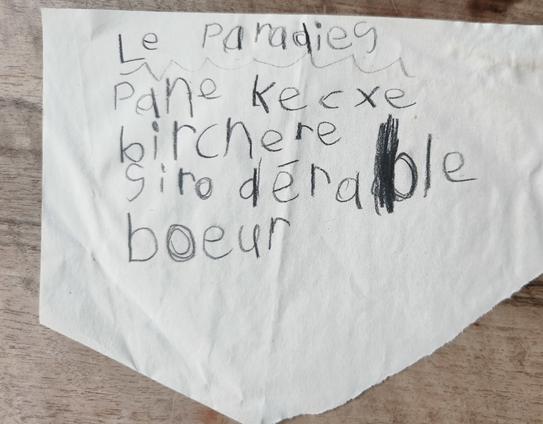 Le Paradies
Pane kecxe
birchere
Siro dérable
boeur